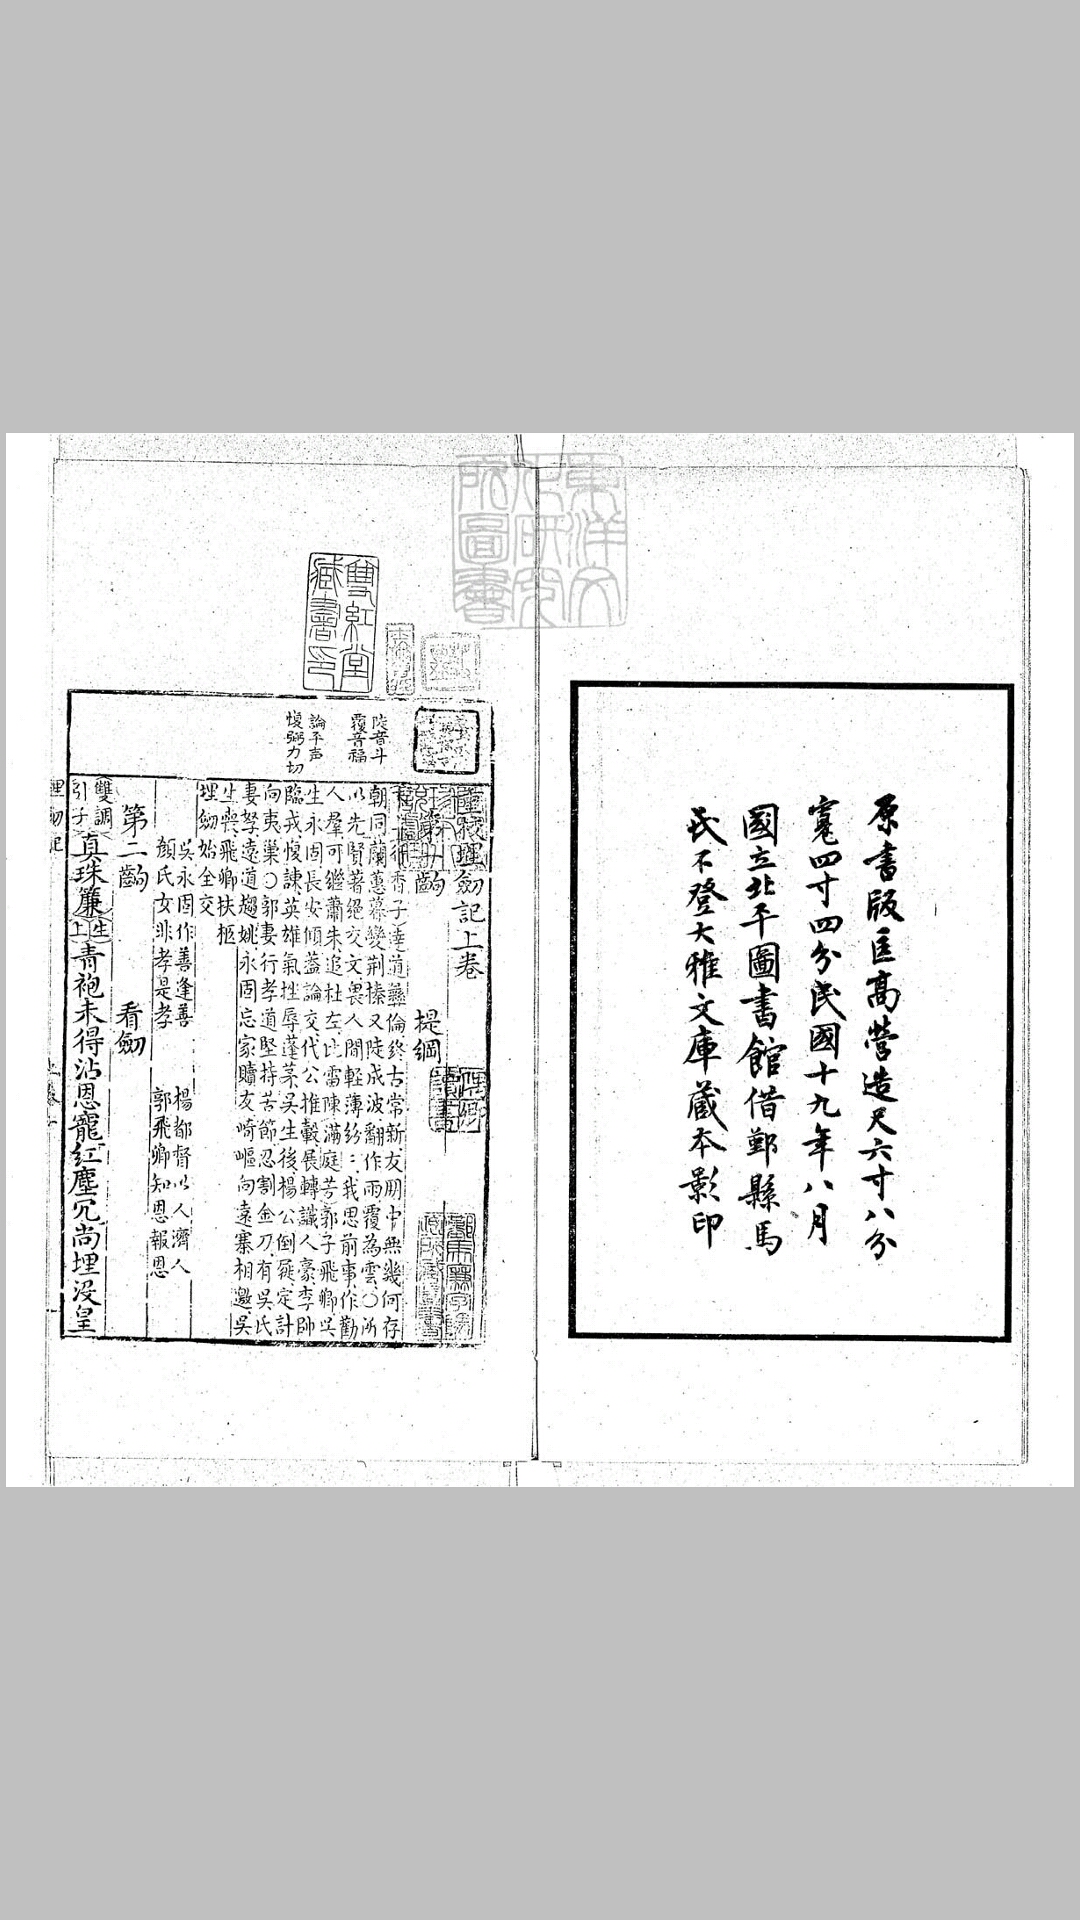 原書版匡高營造尺六寸八分
寬四寸四分民國十九年八月
國立北平圖書館借鄞縣馬
氏不登大雅文庫藏本影印
東洋文
化研究
所圖書
雙紅堂
藏書印
陡音斗
覆音福
論平声
愎弼力切
埋劍記上卷
第一齣
提綱
行香子達道彝倫終古常新友朋中無幾何存
朝同蘭蕙暮變荆榛又陡成波翻作雨覆為雲〇所
以先賢著絕交文畏人間輕薄紛〻我思前事作勸
人羣可繼蕭朱追杜左比雷陳滿庭芳郭子飛卿吳
生永固長安傾蓋論交代公推轂展轉識人豪李帥
臨戎愎諫英雄氣挫辱蓬茅吳生後楊公倒屣定計
向夷巢〇郭妻行孝道堅持苦節忍割金刀有吳氏
妻孥遠道趨姚永固忘家贖友崎嶇向遠寨相邀吳
生喪飛卿扶柩
埋劍始全交
吳永固作善逢善
楊都督以人濟人
顏氏女非孝是孝
郭飛卿知恩報恩
第二齣
看劍
雙調
引子
真珠簾
生
上
青袍未得沾恩寵紅塵冗尚埋沒皇
埋劍記
上卷
一